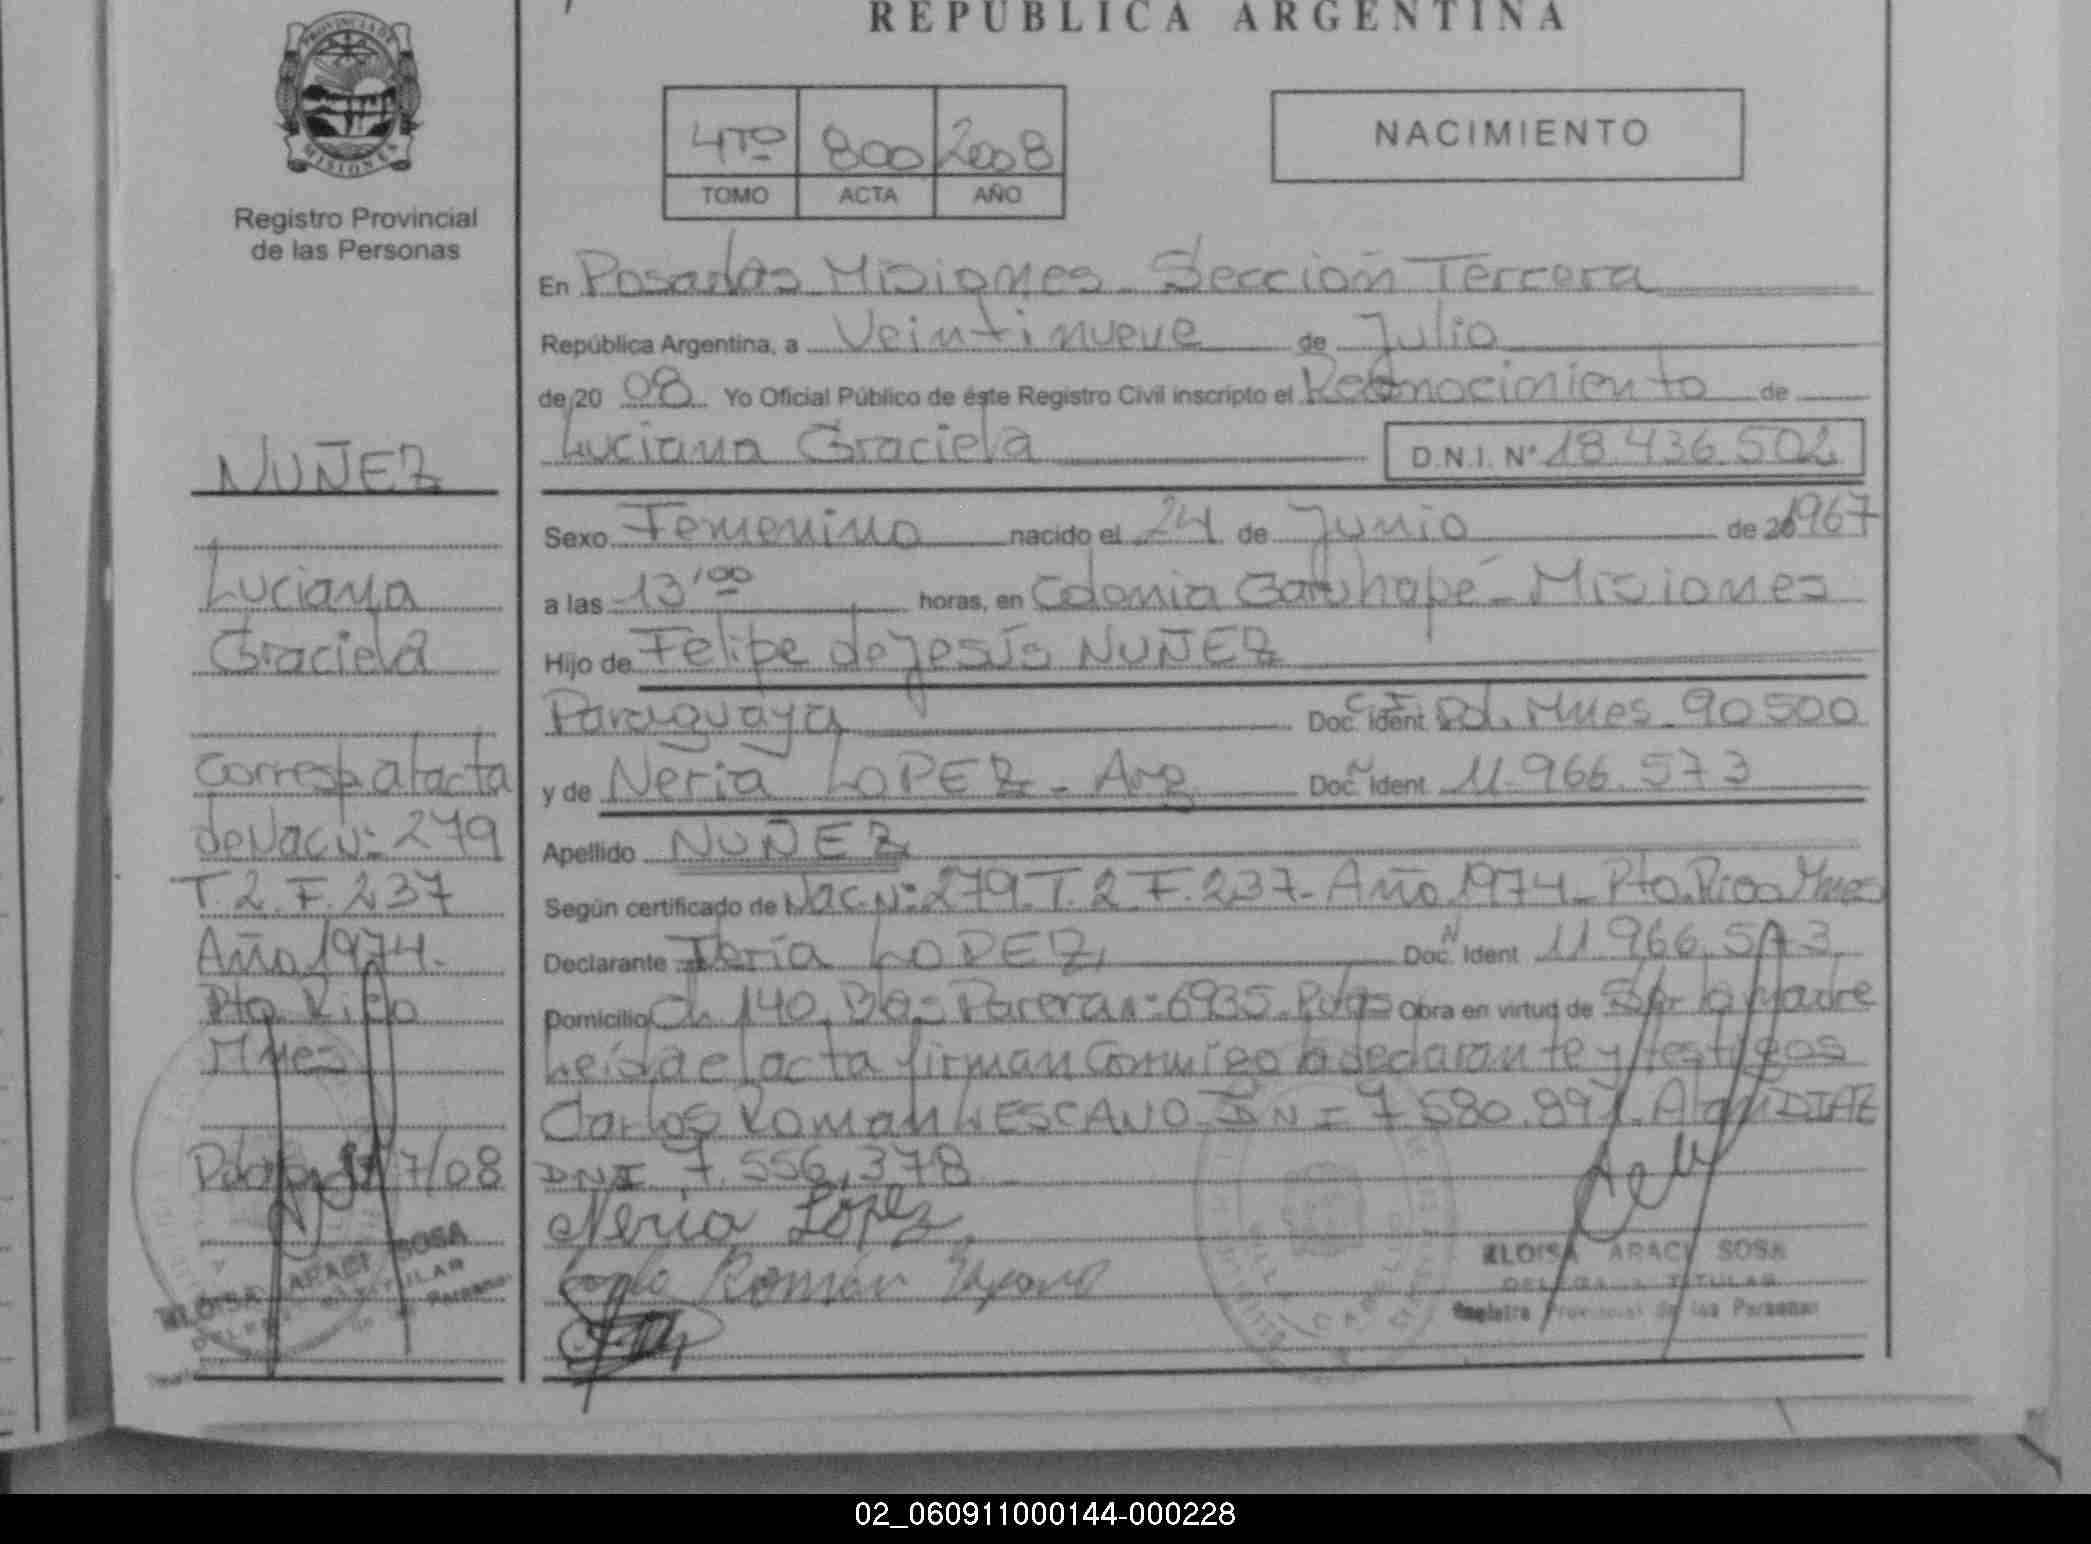 REPUBLICA ARGENTINA
PROVINCIA DE
MISIONES
Registro Provincial
de las Personas
4TO 800 2008
TOMO ACTA AÑO
NACIMIENTO
En Posadas Misiones - Sección Tercera
República Argentina, a Veintinueve de Julio
de 20 08 Yo Oficial Público de éste Registro Civil inscripto el Reconocimiento de
Luciana Graciela D.N.I. Nº 18.436.502
Sexo Femenino nacido el 24 de Junio de 1967
a las 13'00 horas, en Colonia Garuhapé - Misiones
Hijo de Felipe de Jesús NUÑEZ
Paraguaya Doc. Ident Pol. Mnes. 90500
y de Neria LOPEZ - Arg Doc. Ident 11.966.573
Apellido NUÑEZ
Según certificado de Nac. Nº 279. T. 2 F. 237 - Año 1974 - Pto. Rico Mnes
Declarante Neria LOPEZ Doc. Ident 11.966.573
Domicilio Ch 140. Bº Parera Nº 6935. Pdas Obra en virtud de Ser la Madre
Leída el acta firman conmigo la declarante y testigos
Carlos Roman LESCANO DNI 7.580.897. DIAZ
DNI 7.556.378
Neria López
Román
ELOISA ARACI SOSA
DELEGADA TITULAR
Registro Provincial de las Personas
NUÑEZ
Luciana
Graciela
Corresp. al acta
de Nac Nº 279
T. 2. F. 237
Año 1974.
Pto. Rico
Mnes
7/08
ELOISA ARACI SOSA
02_060911000144-000228